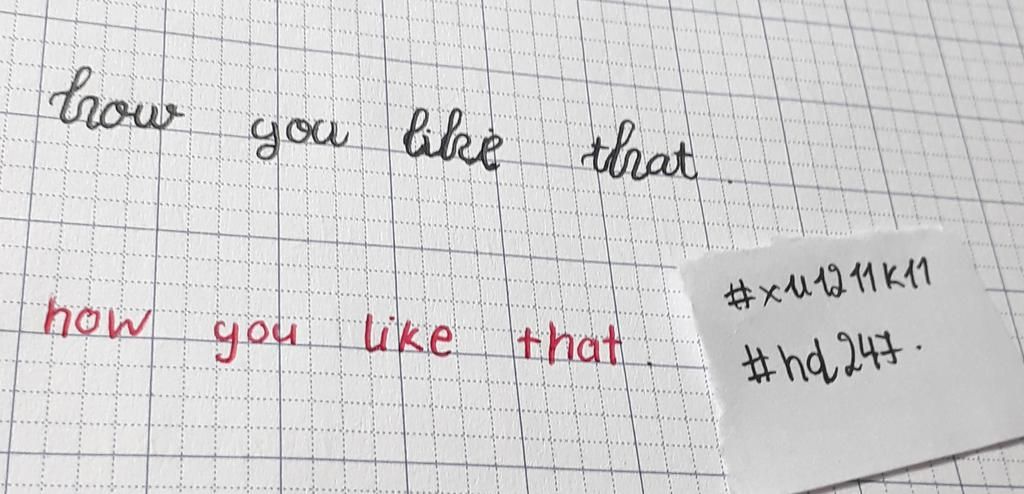 how you like that.
how you like that.
#xu1211k11
#hd247.